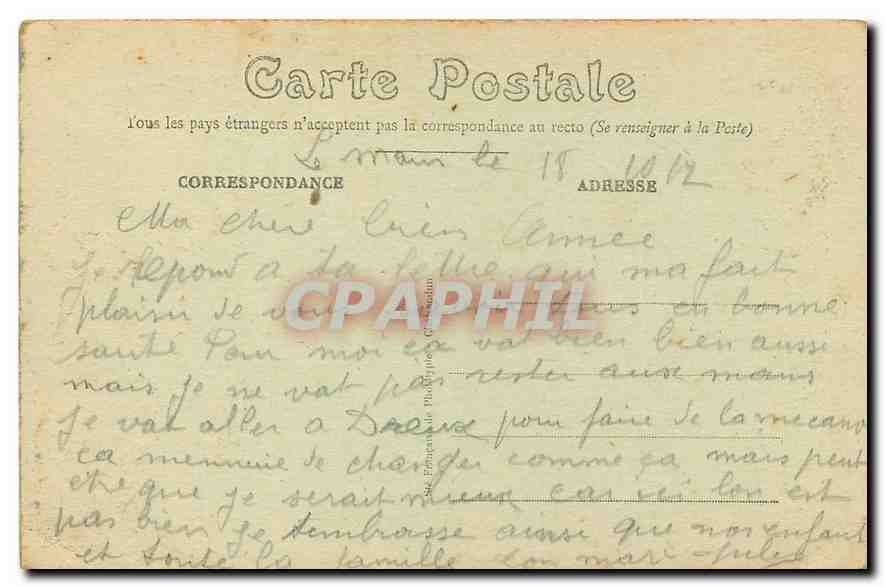 Carte Postale
Tous les pays étrangers n'acceptent pas la correspondance au recto (Se renseigner à la Poste)
Le mans le 18 10 17
CORRESPONDANCE
ADRESSE
Ma chère bien aimée
Je repond a ta lettre qui ma fait
plaisir de vous en bonne
santé Pour moi ça vat bien bien aussi
mais je ne vat pas rester aux mans
je vat aller a Dreux pour faire de la mecano
ça mennuie de changer comme ça mais peut
etre que je serait mieux car ici lon est
pas bien je tembrasse ainsi que nos enfant
et toute la famille ton mari Jules
Sté Française de Phototypie
CPAPHIL